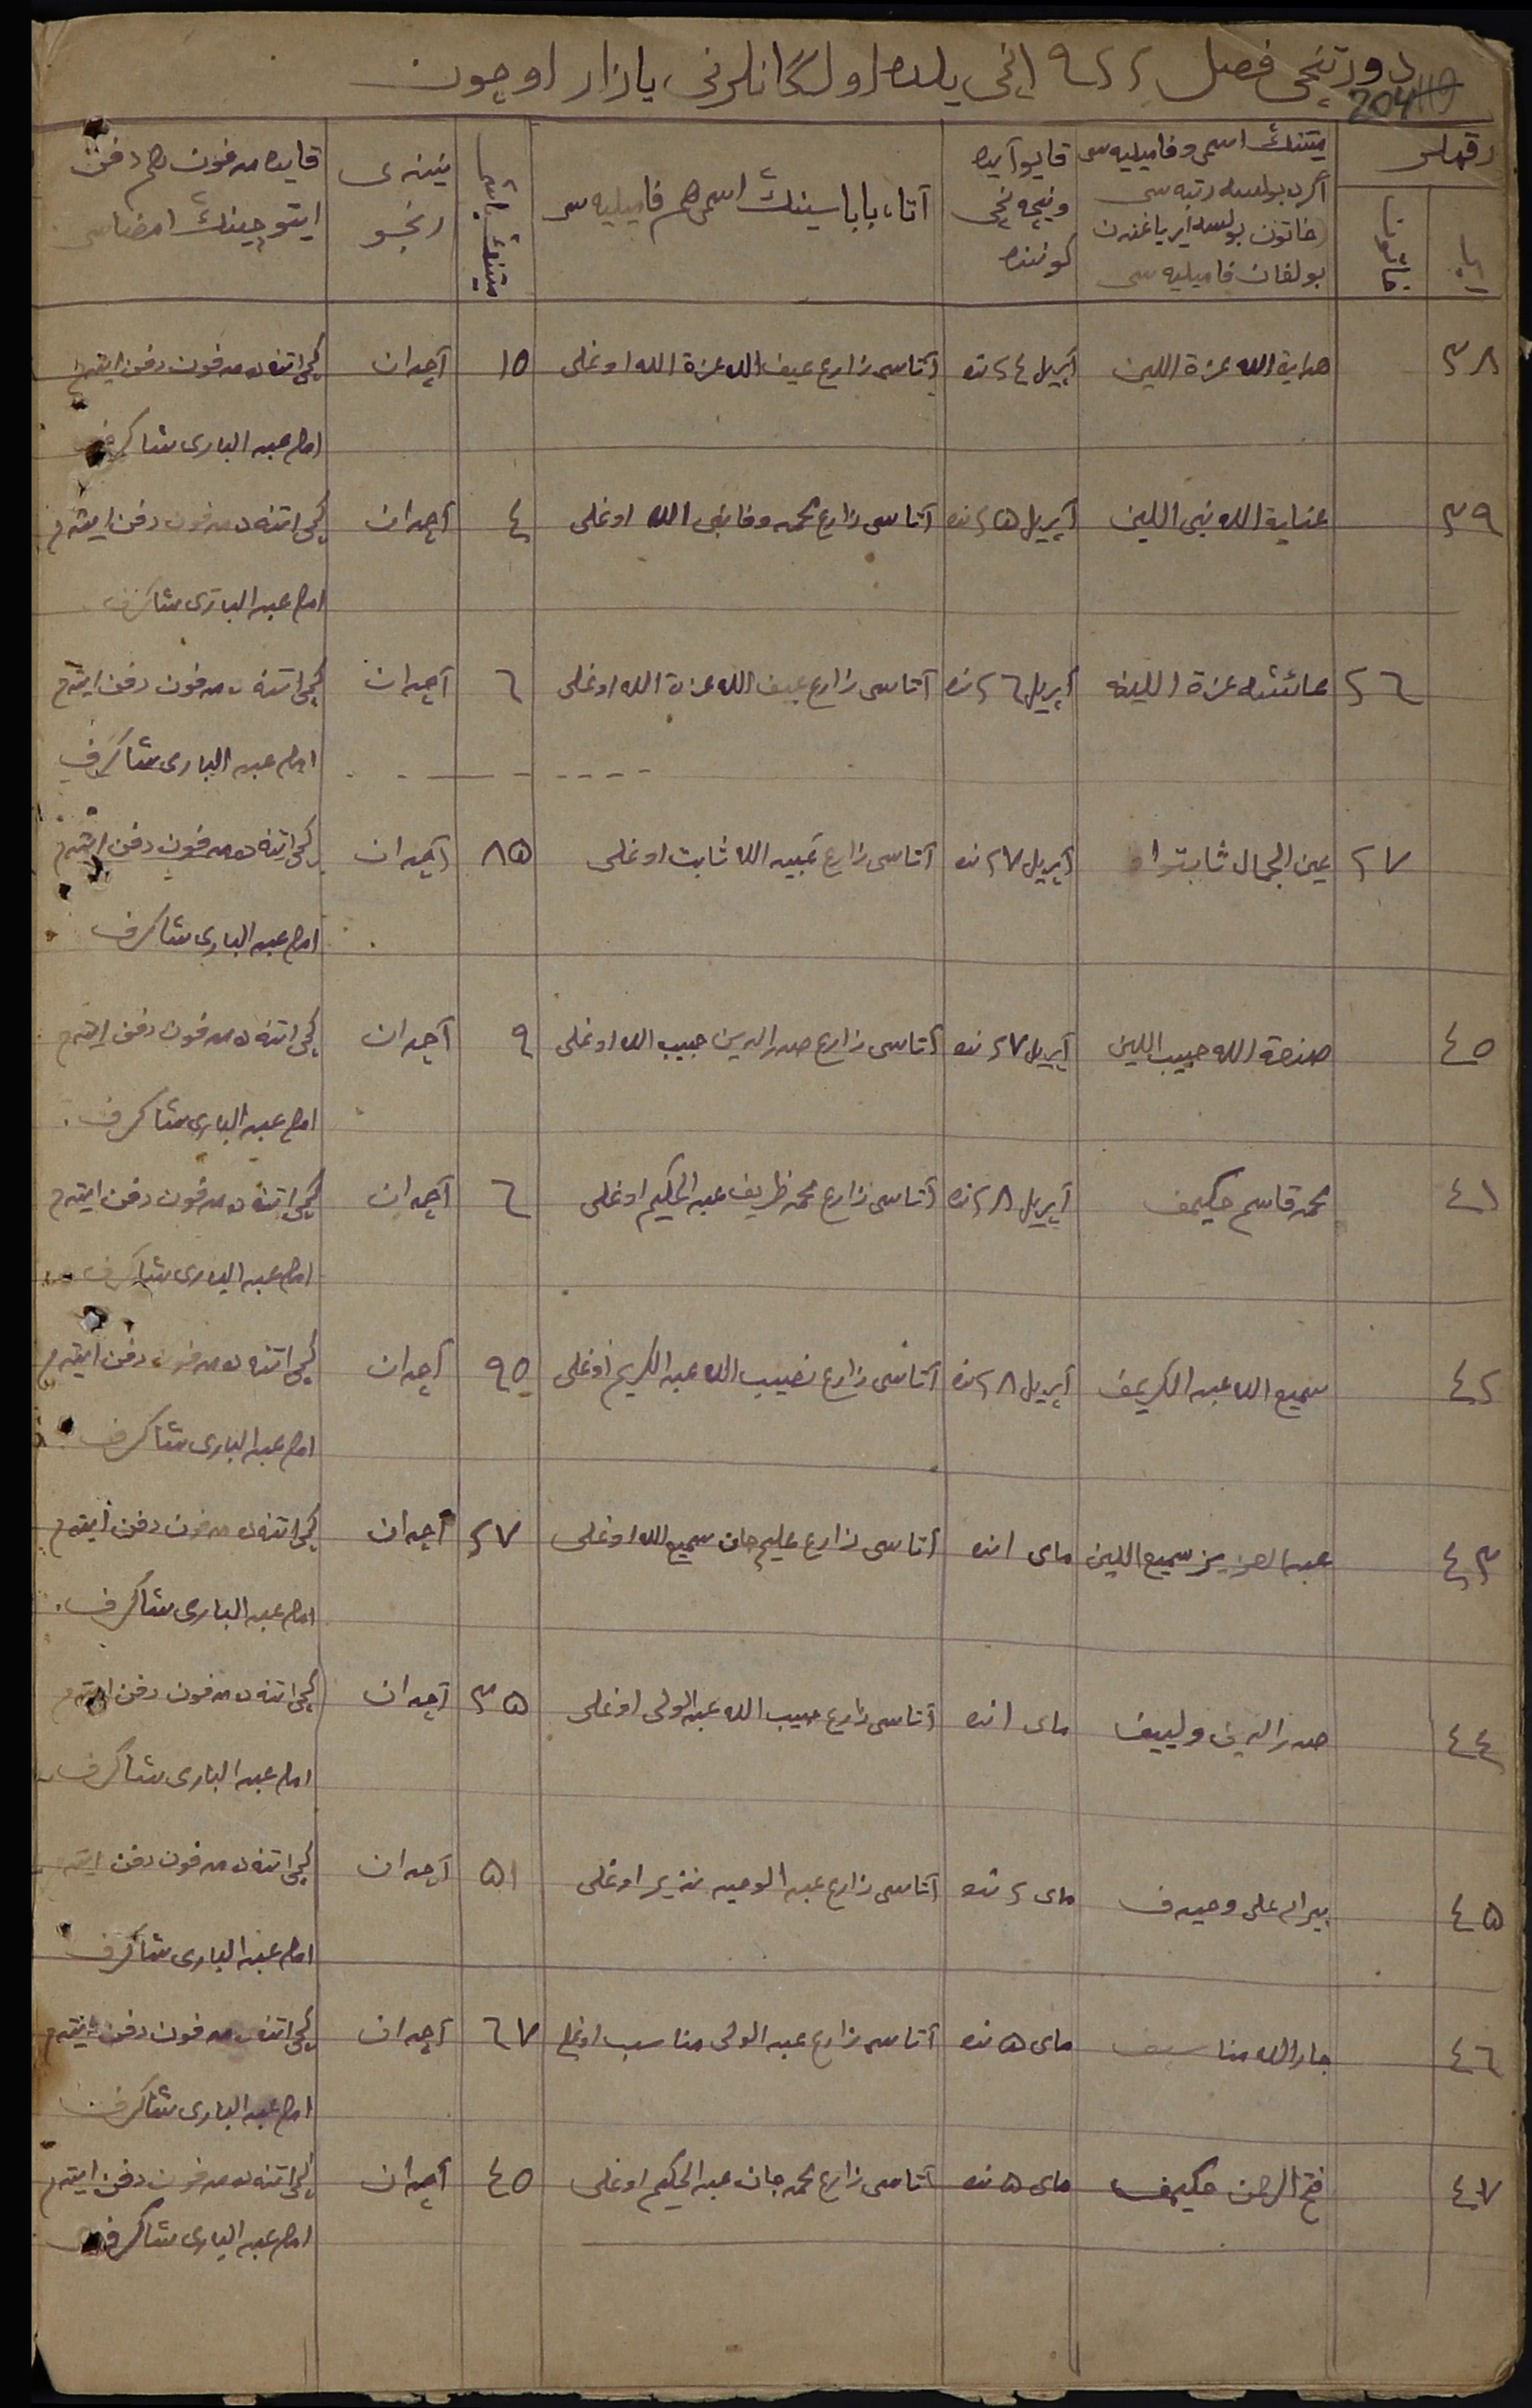 دورتنچی فصل ٩٢٢ انچی یلده اولگانلرنی یازار اوچون
204
رقملر
ایر
خاتون
میتنڭ اسمی و فامیلیه سی
اگر ده بولسه رتبه سی
(خاتون بولسه ایر یاغندن
بولغان فامیلیه سی
قایو آیده
و نیچه نچی
کوننده
آتا، باباسینڭ اسمی هم فامیلیه سی
میتنڭ یاشی
نیندی
رنجو
قایده مدفون هم دفن
ایتوچینڭ امضاسی
٣٨ هدایة الله عزة اللین آپریل ٢٤ نده آتاسی زارع عیف الله عزة الله اوغلی ١٥ آچدان کچی اتنه ده مدفون دفن ایتدم
امام عبد الباری شاکرف
٣٩ عنایة الله نبی اللین آپریل ٢٥ نده آتاسی زارع محمد وفا نبی الله اوغلی ٤ آچدان کچی اتنه ده مدفون دفن ایتدم
امام عبد الباری شاکرف
٢٦ عائشه عزة اللینه آپریل ٢٦ نده آتاسی زارع عیف الله عزة الله اوغلی ٦ آچدان کچی اتنه ده مدفون دفن ایتدم
امام عبد الباری شاکرف
٢٧ عین الجمال ثابتوا آپریل ٢٧ نده آتاسی زارع عبید الله ثابت اوغلی ٨٥ آچدان کچی اتنه ده مدفون دفن ایتدم
امام عبد الباری شاکرف
٤٥ صنعة الله حبیب اللین آپریل ٢٧ نده آتاسی زارع صدر الدین حبیب الله اوغلی ٩ آچدان کچی اتنه ده مدفون دفن ایتدم
امام عبد الباری شاکرف
٤١ محمد قاسم حکیمف آپریل ٢٨ نده آتاسی زارع محمد ظریف عبد الحکیم اوغلی ٦ آچدان کچی اتنه ده مدفون دفن ایتدم
امام عبد الباری شاکرف
٤٢ سمیع الله عبد الکریمف آپریل ٢٨ نده آتاسی زارع نصیب الله عبد الکریم اوغلی ٩٥ آچدان کچی اتنه ده مدفون دفن ایتدم
امام عبد الباری شاکرف
٤٣ عبد العزیز سمیع اللین مای ١ نده آتاسی زارع علیم جان سمیع الله اوغلی ٢٧ آچدان کچی اتنه ده مدفون دفن ایتدم
امام عبد الباری شاکرف
٤٤ صدر الدین ولییف مای ١ نده آتاسی زارع حبیب الله عبد الولی اوغلی ٣٥ آچدان کچی اتنه ده مدفون دفن ایتدم
امام عبد الباری شاکرف
٤٥ بیرام علی وحیدف مای ٢ نده آتاسی زارع عبد الوحید نذیر اوغلی ٥١ آچدان کچی اتنه ده مدفون دفن ایتدم
امام عبد الباری شاکرف
٤٦ جار الله مناسبف مای ٥ نده آتاسی زارع عبد الولی مناسب اوغلی ٦٧ آچدان کچی اتنه ده مدفون دفن ایتدم
امام عبد الباری شاکرف
٤٧ فتح الرحمن حکیمف مای ٥ نده آتاسی زارع محمد جان عبد الحکیم اوغلی ٤٥ آچدان کچی اتنه ده مدفون دفن ایتدم
امام عبد الباری شاکرف